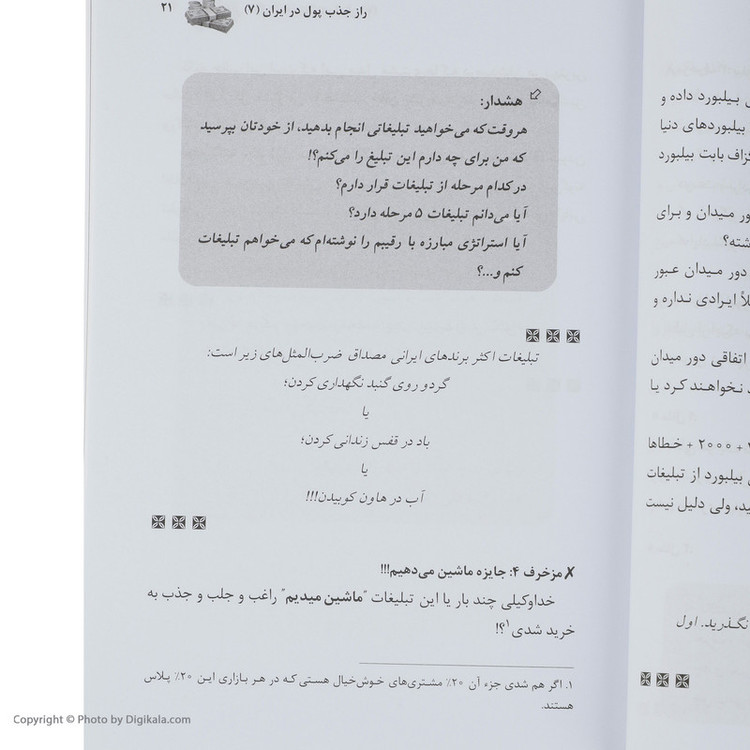 راز جذب پول در ایران (۷) ۲۱
هشدار:
هروقت که می‌خواهید تبلیغاتی انجام بدهید، از خودتان بپرسید
که من برای چه دارم این تبلیغ را می‌کنم؟!
در کدام مرحله از تبلیغات قرار دارم؟
آیا می‌دانم تبلیغات ۵ مرحله دارد؟
آیا استراتژی مبارزه با رقیبم را نوشته‌ام که می‌خواهم تبلیغات
کنم و...؟
تبلیغات اکثر برندهای ایرانی مصداق ضرب‌المثل‌های زیر است:
گردو روی گنبد نگهداری کردن؛
یا
باد در قفس زندانی کردن؛
یا
آب در هاون کوبیدن!!!
✗ مزخرف ۴: جایزه ماشین می‌دهیم!!!
خداوکیلی چند بار یا این تبلیغات "ماشین میدیم" راغب و جلب و جذب به
خرید شدی۱؟!
۱. اگر هم شدی جزء آن ۲۰٪ مشتری‌های خوش‌خیال هستی که در هر بازاری این ۲۰٪ پلاس
هستند.
بیلبورد داده و
بیلبوردهای دنیا
گزاف بابت بیلبورد
میدان و برای
دور میدان عبور
ایرادی نداره و
اتفاقی دور میدان
نخواهند کرد یا
+ ۲۰۰۰ + خطاها
بیلبورد از تبلیغات
ولی دلیل نیست
نگذرید. اول
Copyright © Photo by Digikala.com